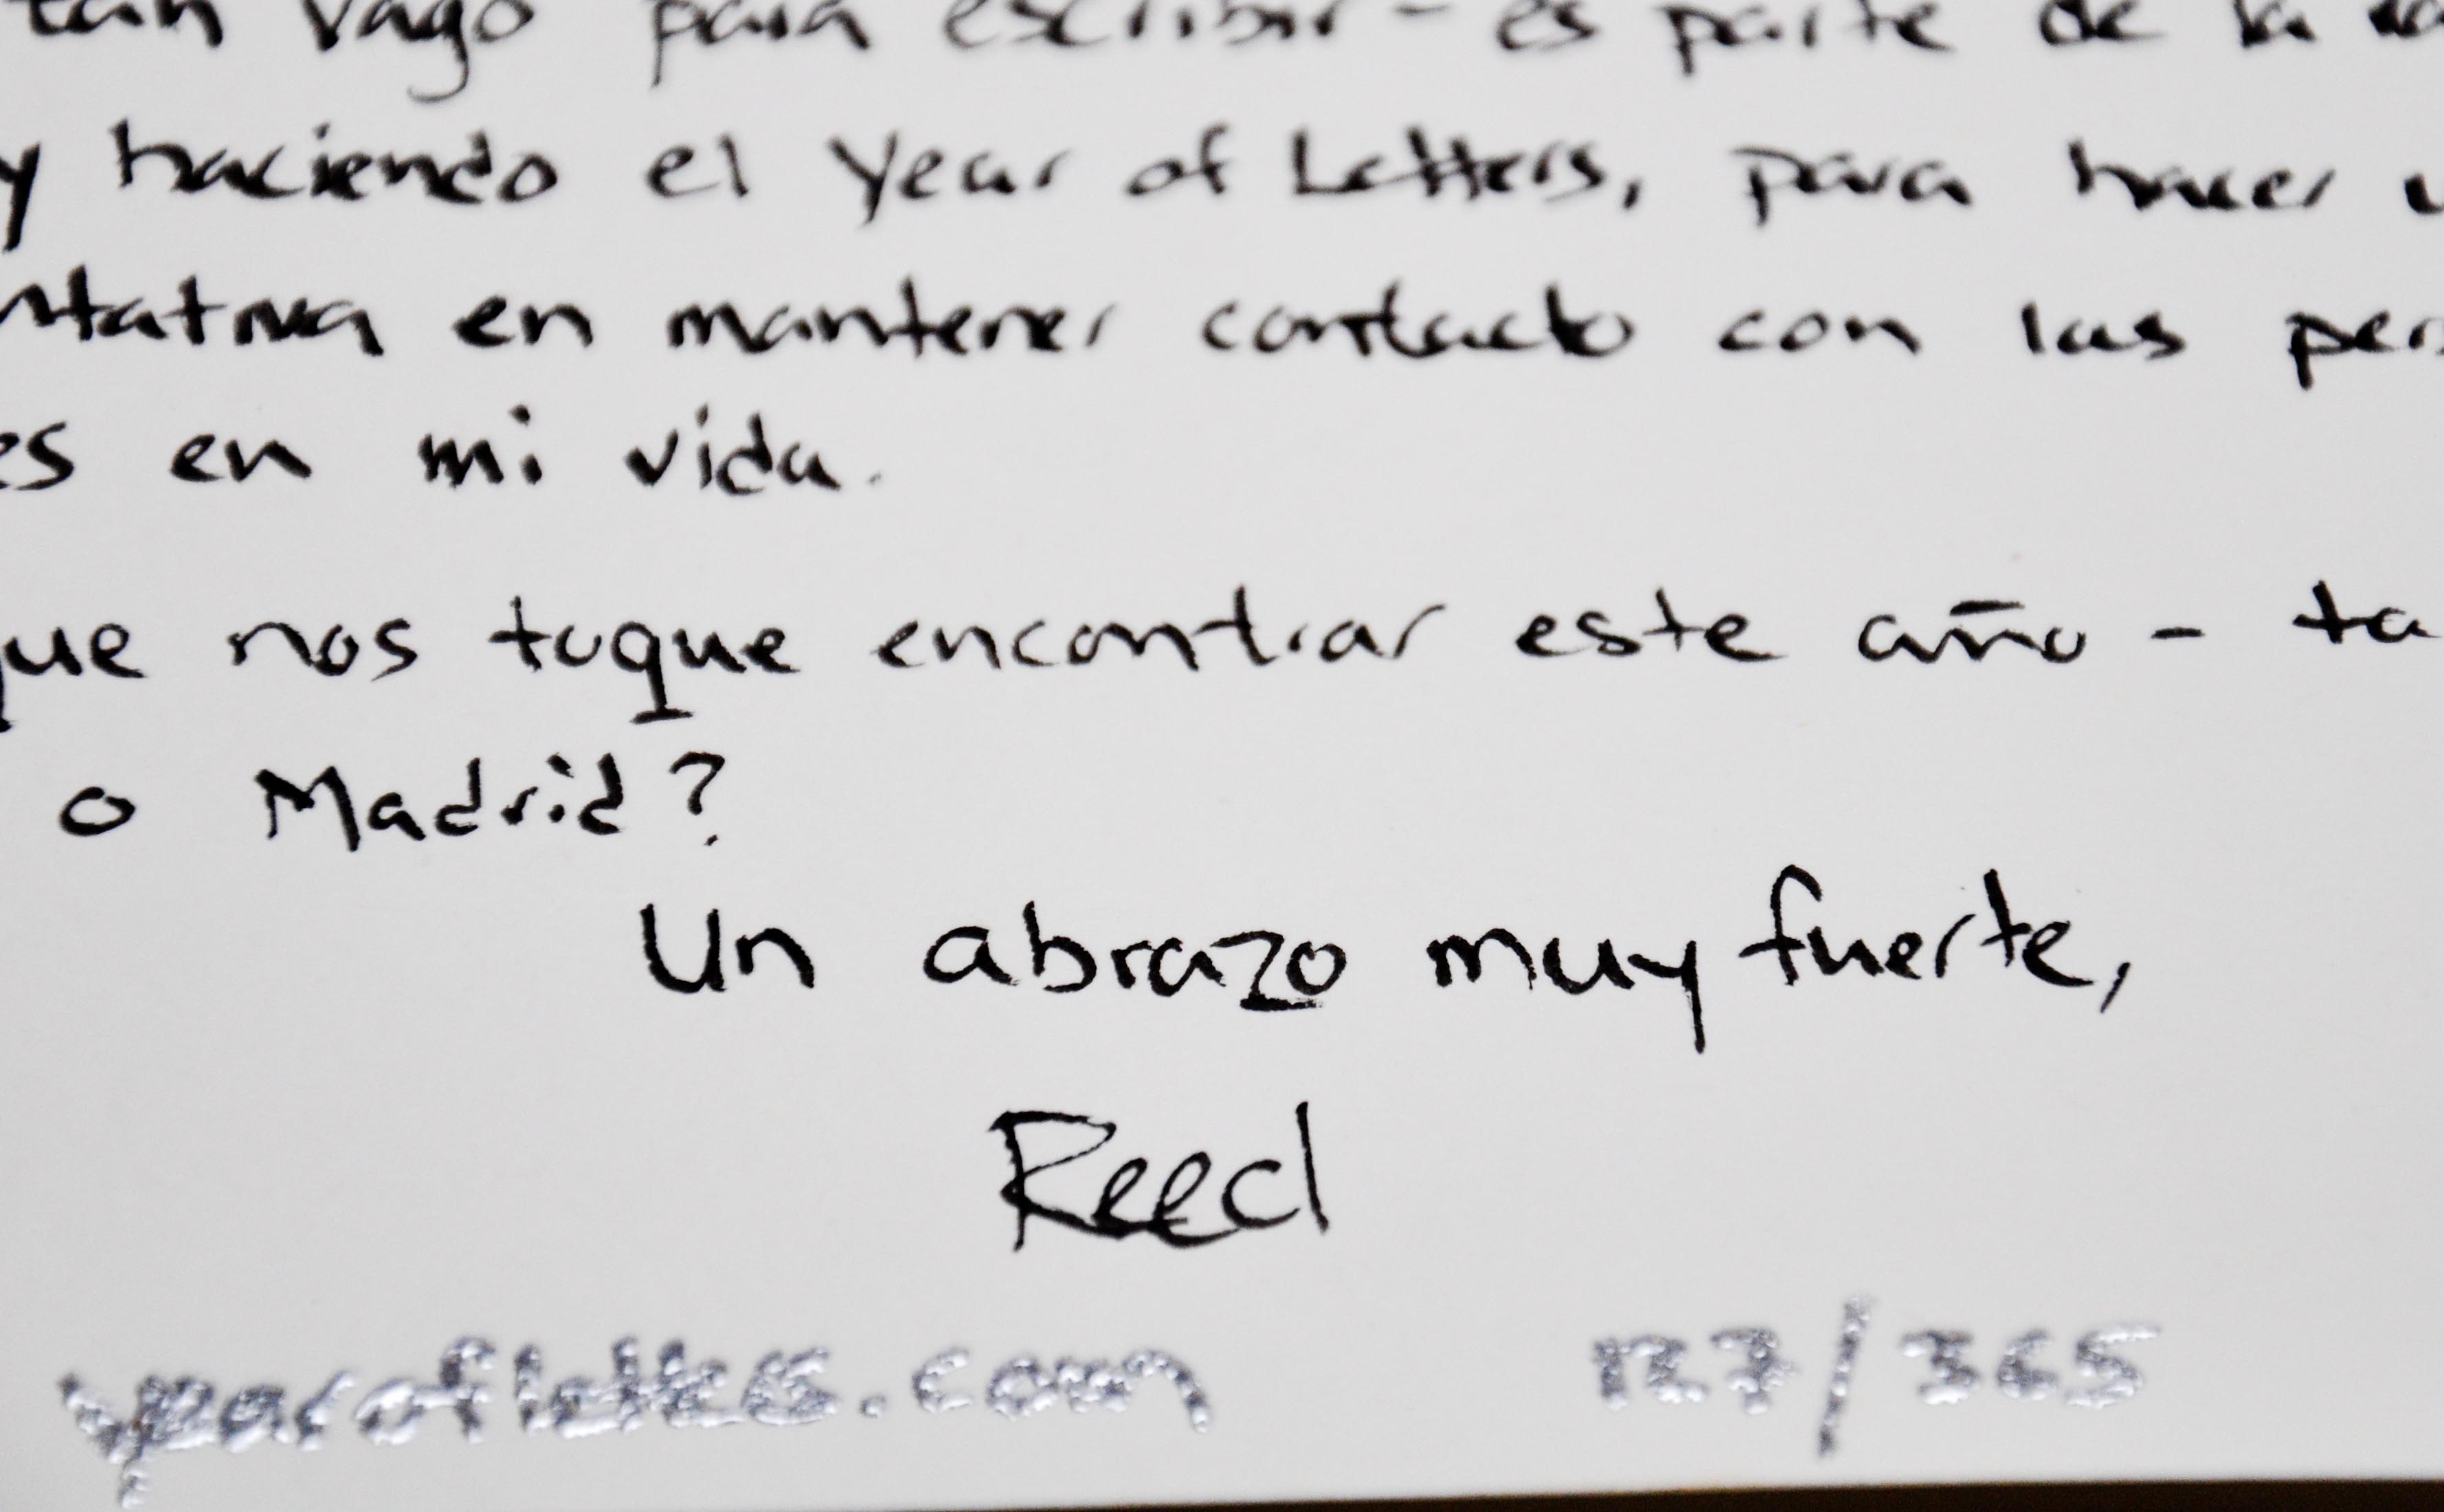 tan vago para escribir - es parte de la
y haciendo el Year of Letters, para hacer
ntativa en mantener contacto con las per
es en mi vida.
que nos toque encontrar este año - ta
o Madrid?
Un abrazo muy fuerte,
Reed
yearofletters.com 127/365